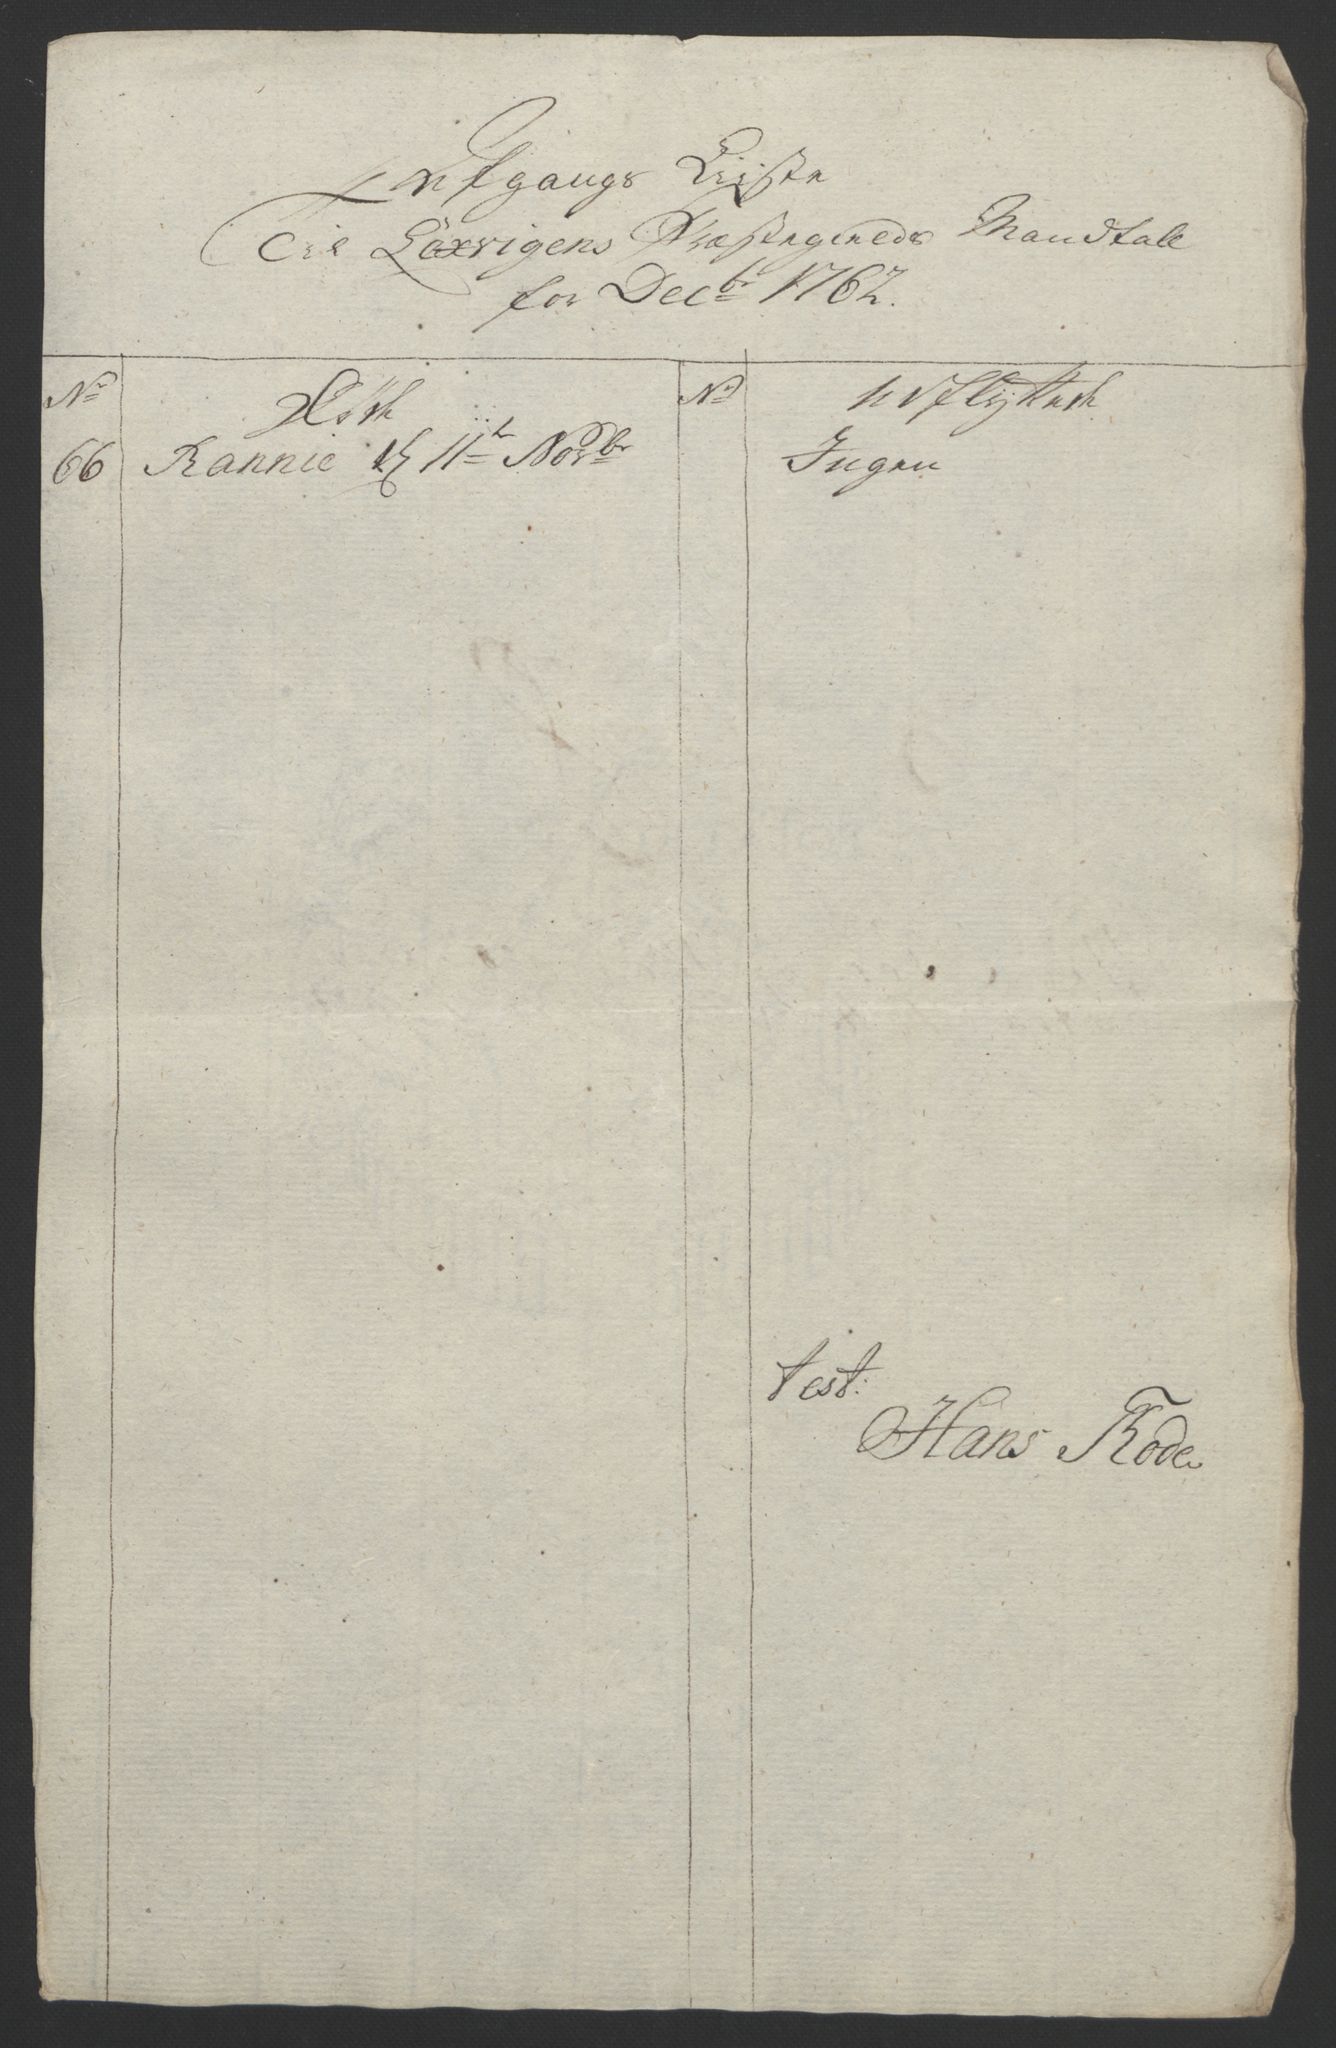 Afgangs Liiste
Til Löxvigens Præstegields Mandtall
for Decbr 1762.
No
Död
No
Udflÿttede
66 Rannie d 11te Novbr
Ingen
test:
Hans Rode